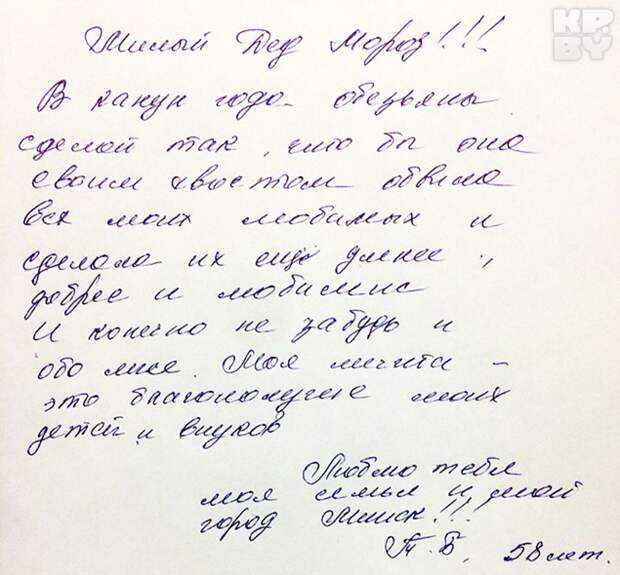 KP.
BY
Милый Дед Мороз!!!
В канун года обезьяны
сделай так, что бы она
своим хвостом обвила
всех моих любимых и
сделала их ещё умнее,
добрее и любимис
И конечно не забудь и
обо мне. Моя мичта –
это благополучие моих
детей и внуков
Люблю тебя
моя семья и мой
город Минск!!!
Т.Б, 58 лет.